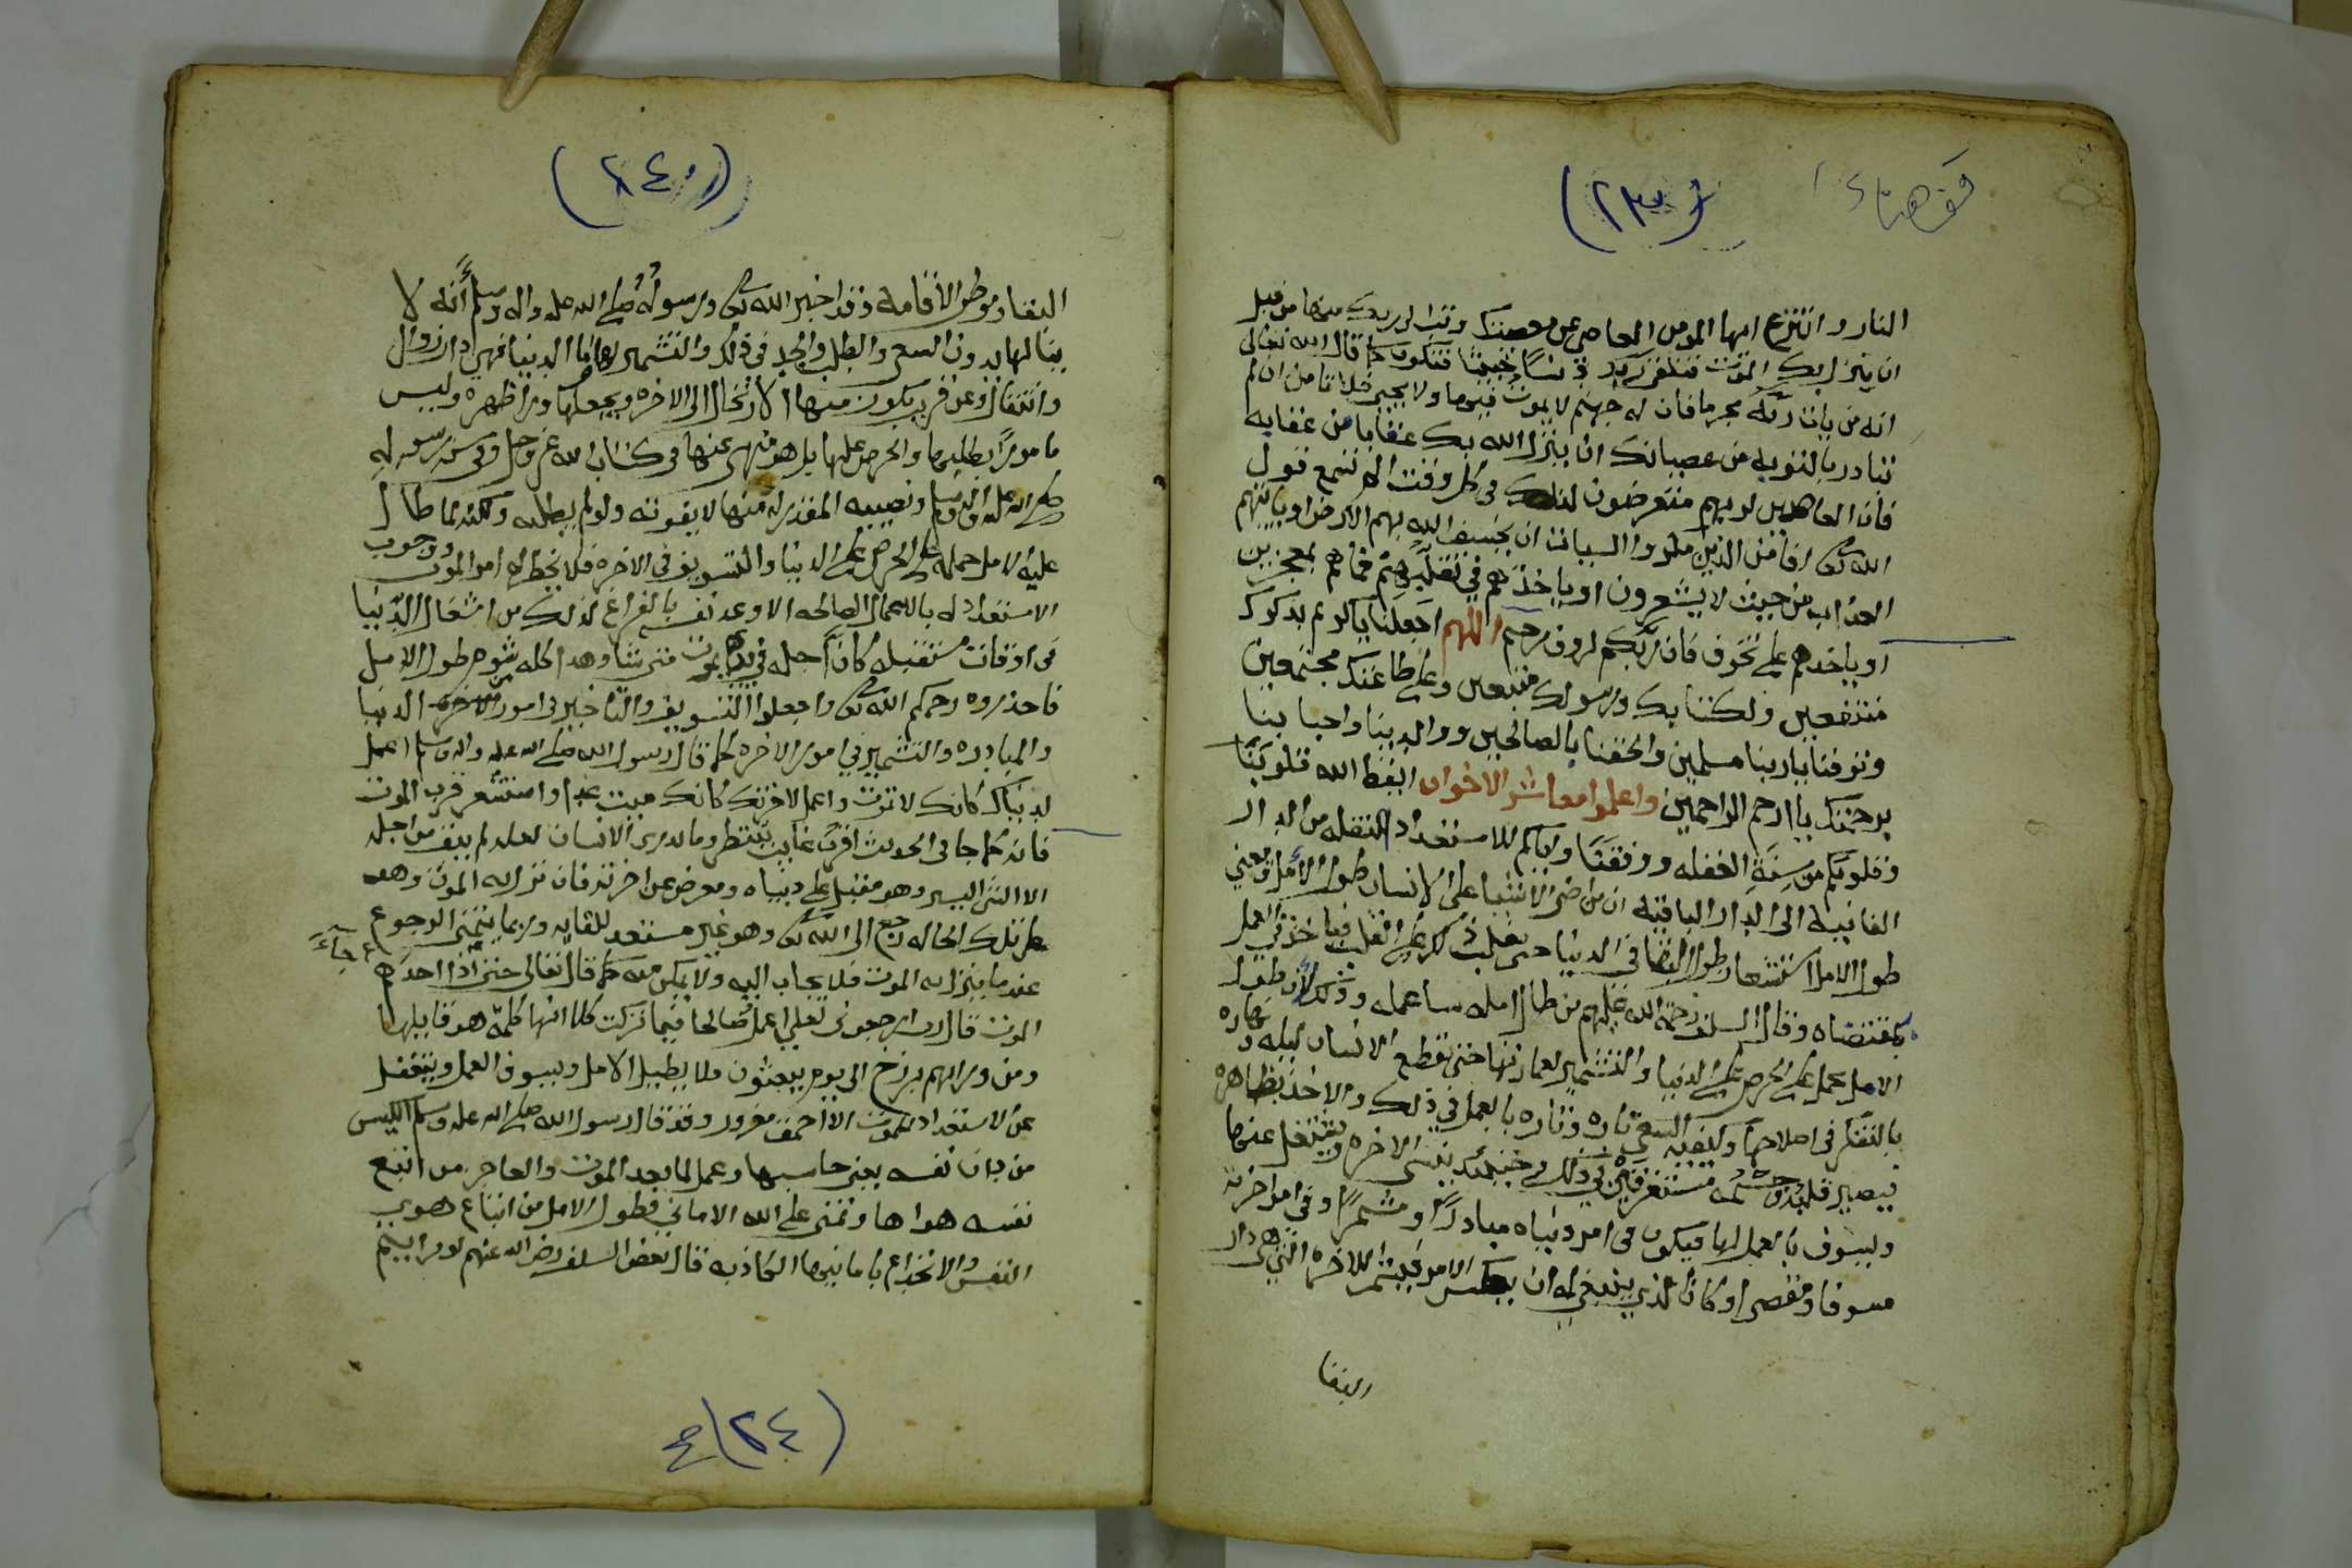 قف هنا
(٢٣)
النار وانتزع ايها المومن العاصي عن معصيتك وتب الى ربك منها من قبل
ان ينزل بك الموت فتلقى ربك فتكون كما قال الله تعالى
انه من يات ربه مجرما فان له جهنم لا يموت فيها ولا يحيى من ان لم
تبادر بالتوبه من عصيانك ان ينزل الله بك عقابا من عقابه
فان العاصين لربهم متعرضون لذلك في كل وقت الم تسمع قول
الله تعالى افامن الذين مكروا السيات ان يخسف الله بهم الارض او ياتيهم
العذاب من حيث لا يشعرون او ياخذهم في تقلبهم فما هم بمعجزين
او ياخذهم على تخوف فان ربكم لروف رحيم اللهم اجعلنا ياكريم بذكرك
منتفعين ولكتابك ورسولك متبعين وعلى طاعتك مجتمعين
وتوفنا ياربنا مسلمين والحقنا بالصالحين ووالدينا واحبابنا
برحمتك يا ارحم الراحمين واعلموا معاشر الاخوان ايقظ الله قلوبنا
وقلوبكم من سِنَةِ الغفله ووفقنا واياكم للاستعداد للنقله من الدار
الفانيه الى الدار الباقيه ان من اضر الاشيا على الانسان طول الأمل ومعنى
طول الامل استشعار طول البقا في الدنيا حتى يغلب ذلك على القلب فياخذ في العمل
بمقتضاه وقال السلف رحمة الله عليهم من طال امله ساعمله وذلك لأن طول
الامل يحمل على الحرص على الدنيا والتشمير لعمارتها حتى يقطع الانسان ليله ونهاره
بالتفكر في اصلاحها وكيفيه السعي تاره وتاره بالعمل في ذلك والاخذ بظاهره
فيصير قلبه وجسمه مستغرقين في ذلك فحينئذ ينسى الاخره ويشتغل عنها
ويسوف بالعمل لها فيكون في امر دنياه مبادرًا ومشمرًا وفي امر اخرته
مسوفا ومقصرا وكان الذي ينبغي له ان يعكس الامر فيشمر للاخره التي هي دار
البقا
(٢٤)
البقا وموطن الأقامه وقد اخبر الله تعالى ورسوله صلى الله عليه واله وسلم أنه لا
ينالها بدون السعي والطلب والجد في ذلك والتشمير لها واما الدنيا فهي دار زوال
وانتقال وعن قريب يكون منها الارتحال الى الاخره ويجعلها ورا ظهره وليس
مامورًا بطلبها والحرص عليها بل هو منهي عنها في كتاب الله عز وجل وفي سنة رسوله
صلى الله عليه واله وسلم ونصيبه المقدر له منها لا يفوته ولو لم يطلبه ولكنه لما طال
عليه الامل حمله على الحرص على الدنيا والتسويف في الاخره فلا يخطر له امر الموت ووجوب
الاستعداد له بالاعمال الصالحه الا وعد نفسه بالفراغ لذلك من اشغال الدنيا
في اوقات مستقبله كان اجله في يده يموت متى شا وهذا كله شوم طول الامل
فاحذروه رحمكم الله تعالى واجعلوا التسويف والتاخير في امور الدنيا
والمبادره والتشمير في امور الاخره كما قال رسول الله صلى الله عليه واله وسلم اعمل
لدنياك كانك لا تموت واعمل لاخرتك كانك ميت غدا واستشعر قرب الموت
فانه كما جا في الحديث اقرب غايب ينتظر وما يدري الانسان لعله لم يبق من اجله
الا الشي اليسير وهو مقبل على دنياه ومعرض عن اخرته فان نزل به الموت وهو
على تلك الحاله رجع الى الله تعالى وهو غير مستعد للقايه وربما يتمنى الرجوع
عند ما ينزل به الموت فلا يجاب اليه ولا يمكن منه كما قال تعالى حتى اذا جآء احدهم
الموت قال رب ارجعون لعلي اعمل صالحا فيما تركت كلا انها كلمة هو قايلها
ومن ورايهم برزخ الى يوم يبعثون فلا يطيل الامل ويسوف العمل ويتغفل
عن الاستعداد للموت الا احمق مغرور وقد قال رسول الله صلى الله عليه وسلم الكيس
من دان نفسه يعني حاسبها وعمل لما بعد الموت والعاجز من اتبع
نفسه هواها وتمنى على الله الاماني فطول الامل من اتباع هوى
النفس والانخداع بامانيها الكاذبه قال بعض السلف رضي الله عنهم لو رايتم
(٢٤)